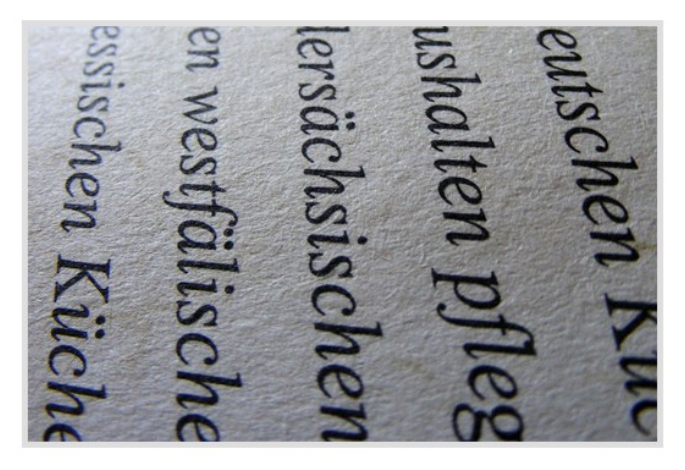 eutschen Küc
ushalten pfleg
lersächsischen
en westfälische
essischen Küche